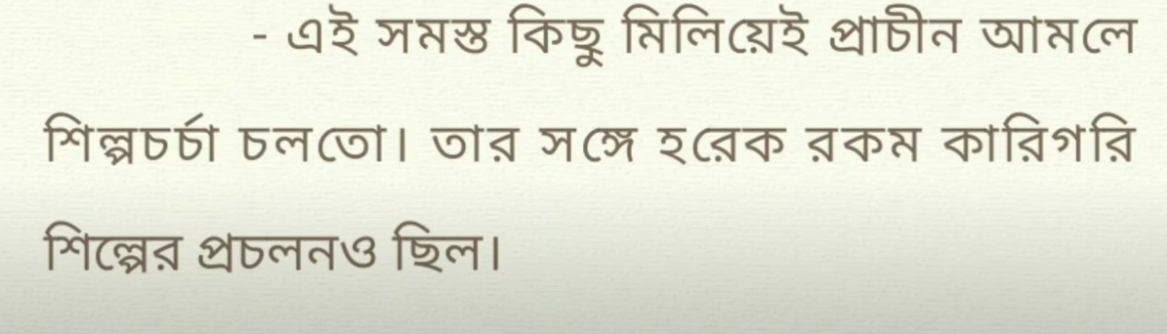 - এই সমস্ত কিছু মিলিয়েই প্রাচীন আমলে
শিল্পচর্চা চলতো। তার সঙ্গে হরেক রকম কারিগরি
শিল্পের প্রচলনও ছিল।